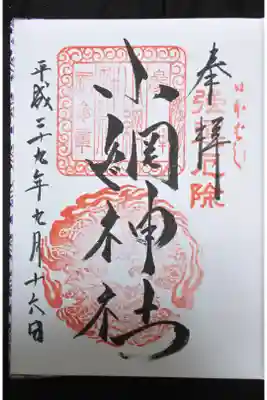 強運厄除
奉拝
小網神社
平成二十九年七月十六日